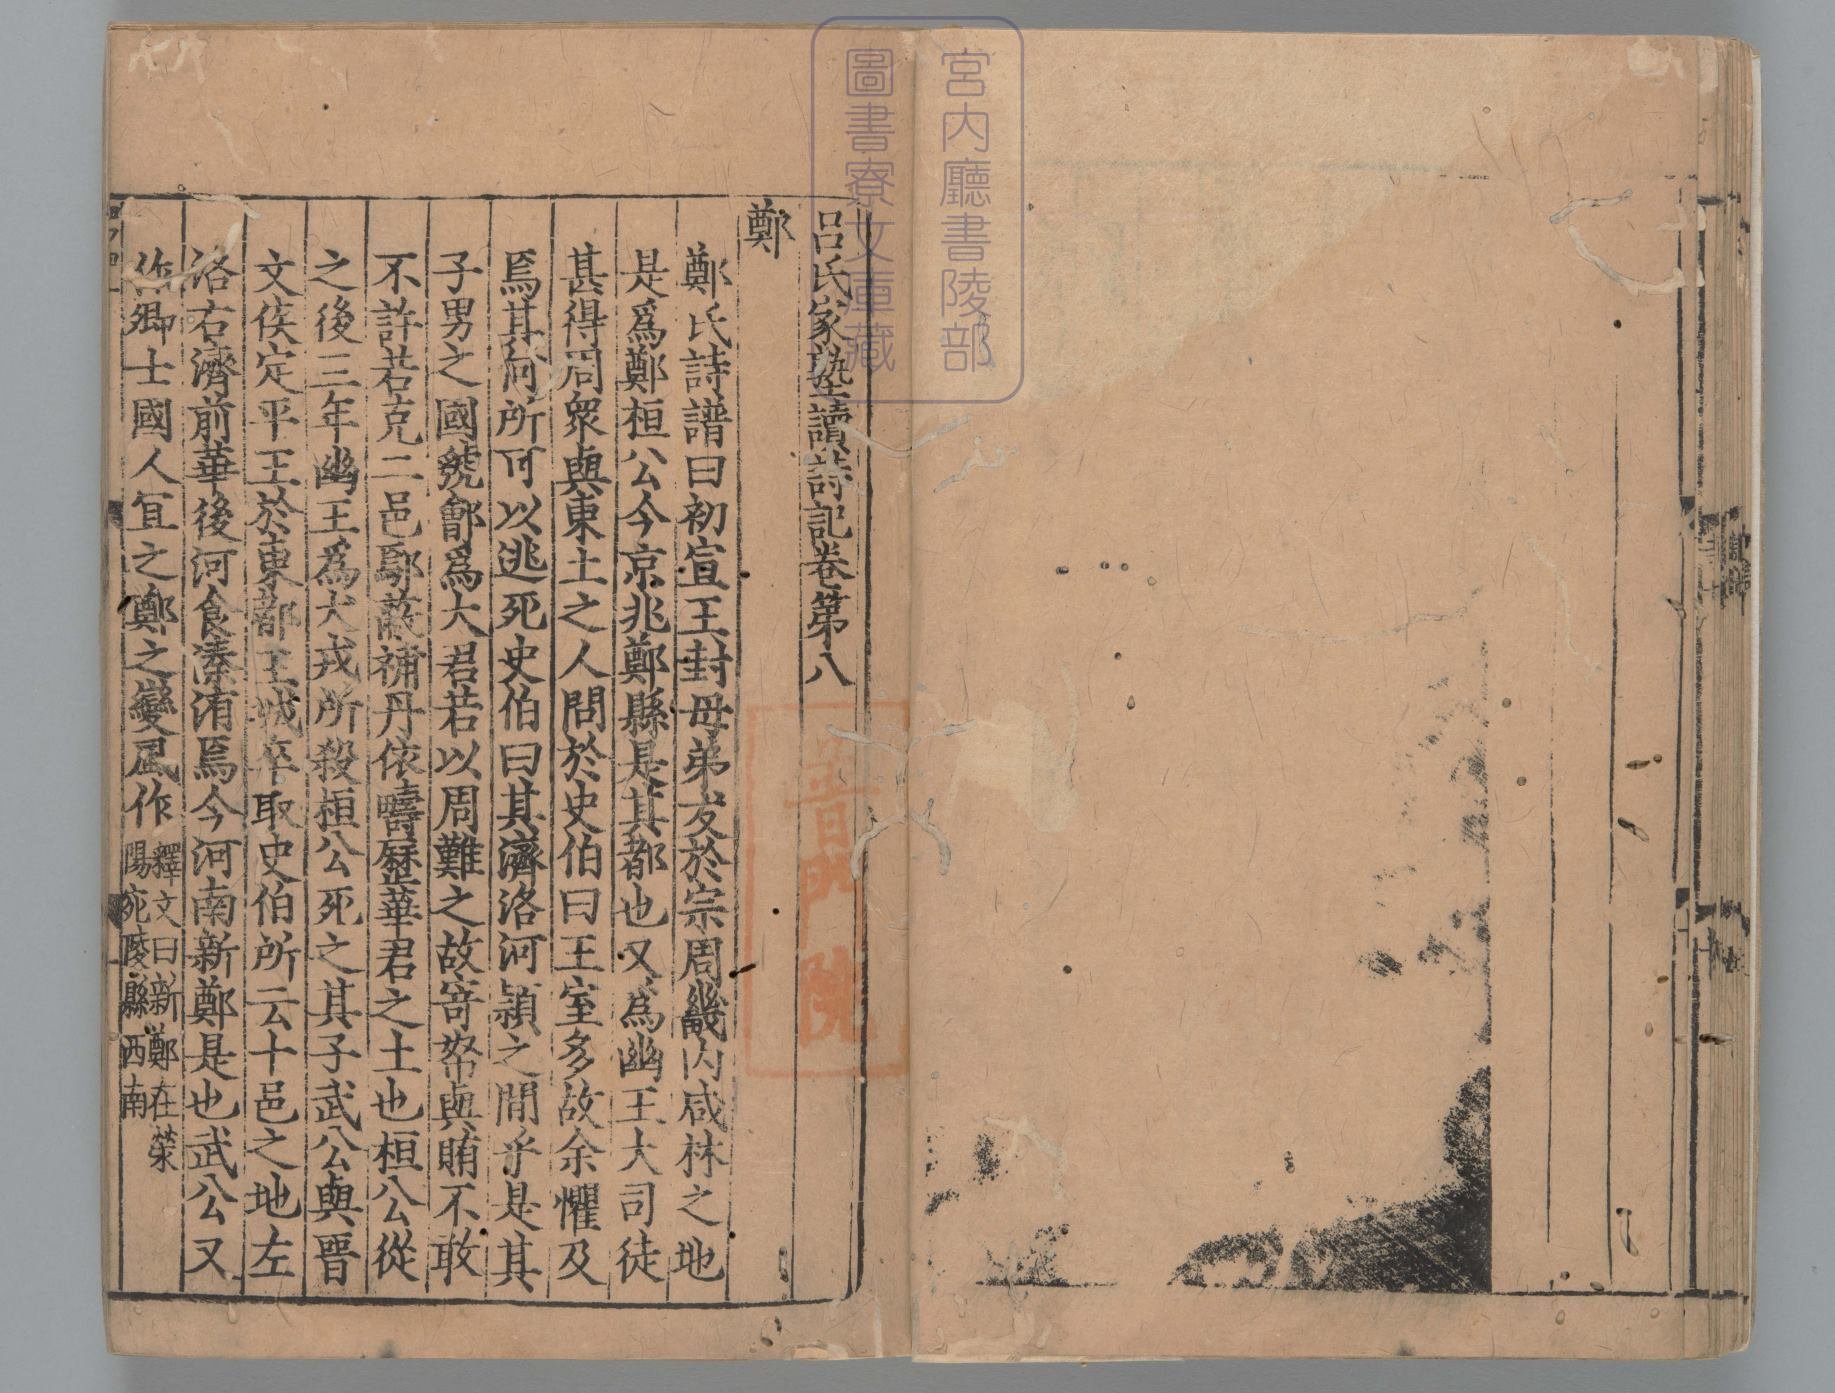 宮内廳書陵部
圖書寮文庫藏
呂氏家塾讀詩記卷第八
鄭
鄭氏詩譜曰初宣王封母弟友於宗周畿内咸林之地
是爲鄭桓公今京兆鄭縣是其都也又爲幽王大司徒
甚得周衆與東土之人問於史伯曰王室多故余懼及
焉其何所可以逃死史伯曰其濟洛河潁之間乎是其
子男之國虢鄶爲大君若以周難之故寄帑與賄不敢
不許若克二邑鄢蔽補丹依疇歷華君之土也桓公從
之後三年幽王爲犬戎所殺桓公死之其子武公與晉
文侯定平王於東都王城卒取史伯所云十邑之地左
洛右濟前華後河食溱洧焉今河南新鄭是也武公又
作卿士國人宜之鄭之變風作
釋文曰新鄭在滎
陽宛陵縣西南